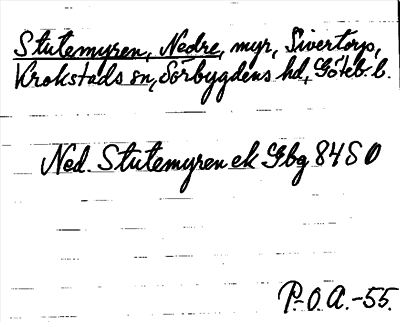 Stutemyren, Nedre, myr, Sivertorp,
Krokstads sn, Sörbygdens hd, Göteb. l.
Ned. Stutemyren ek Gbg 84 S O
P.-O.A.-55.